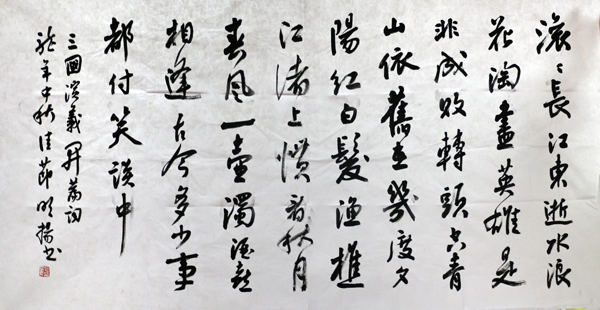 滚々長江東逝水浪
花淘盡英雄是
非成敗轉頭空青
山依舊在幾度夕
陽紅白髮漁樵
江渚上慣看秋月
春風一壺濁酒喜
相逢古今多少事
都付笑談中
三國演義開篇詞
龍年中秋佳節明揚书